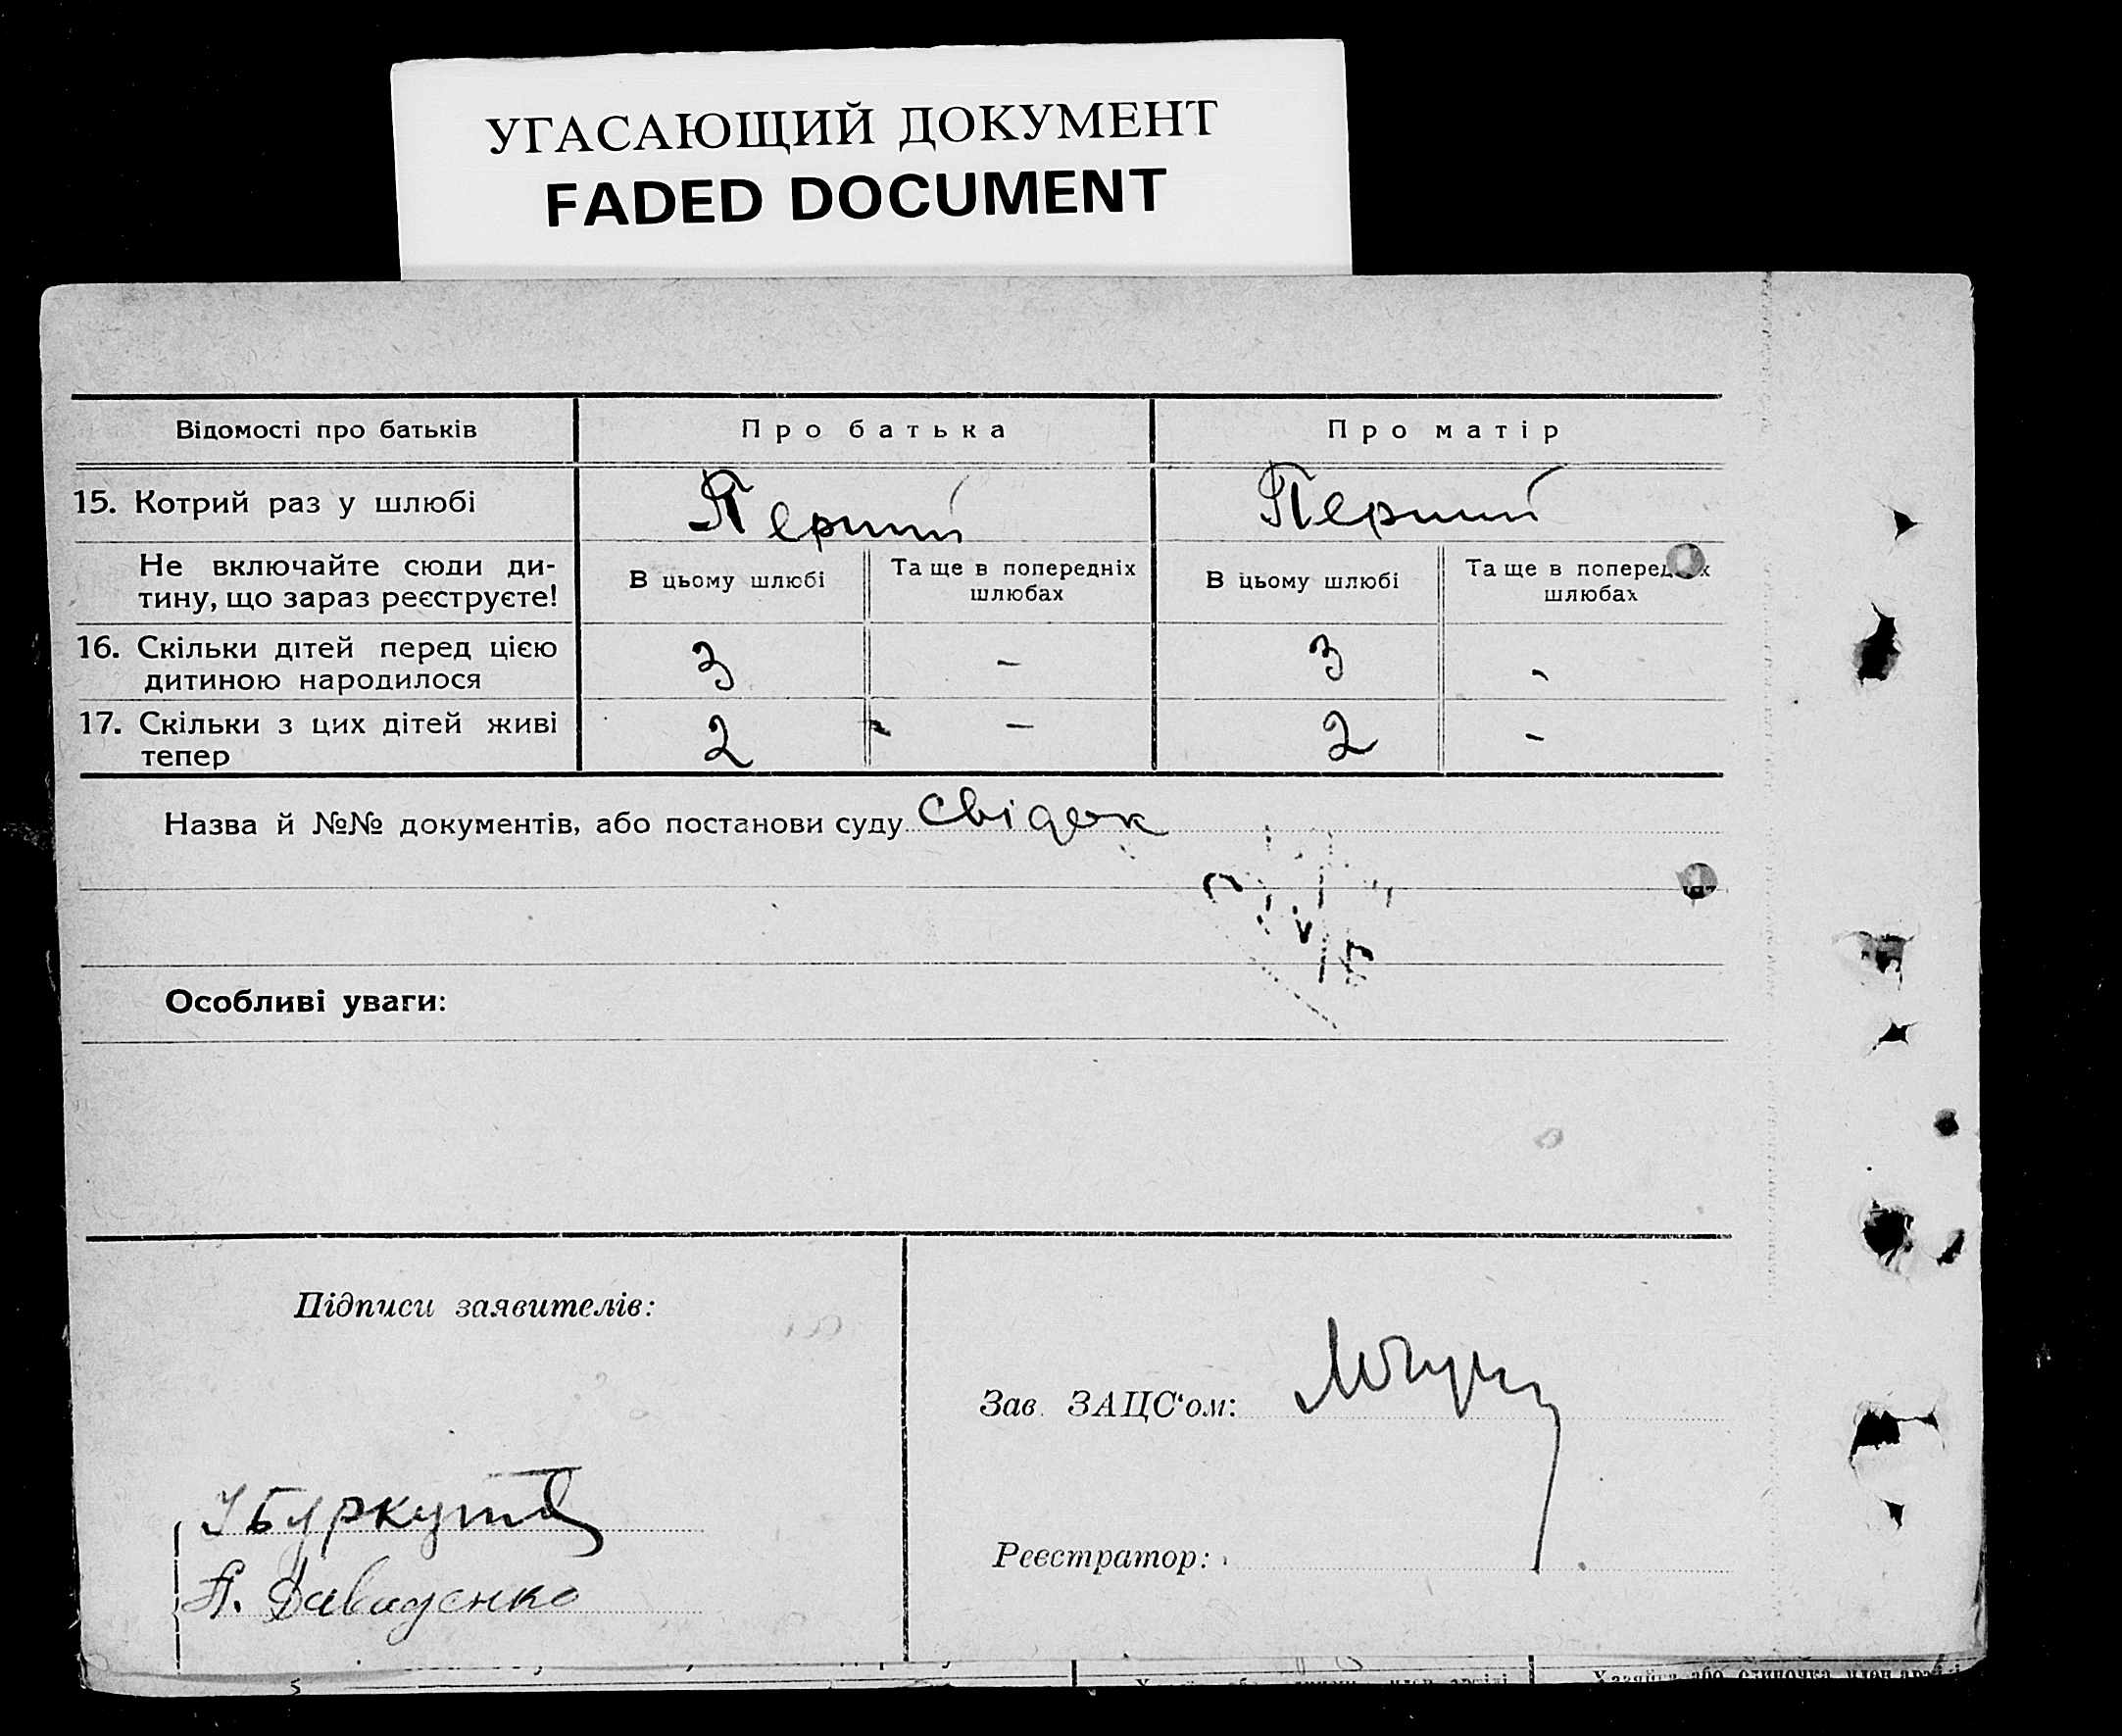 УГАСАЮЩИЙ ДОКУМЕНТ
FADED DOCUMENT
Відомості про батьків
Про батька
Про матір
15. Котрий раз у шлюбі
Перший
Перший
Не включайте сюди ди-
тину, що зараз реєструєте!
В цьому шлюбі
Та ще в попередніх
шлюбах
В цьому шлюбі
Та ще в
шлюбах
16. Скільки дітей перед цією
дитиною народилося
3
-
3
-
17. Скільки з цих дітей живі
тепер
2
-
2
-
Назва й №№ документів, або постанови суду Свідок
Особливі уваги:
Підписи заявителів:
Зав. ЗАЦС‘ом:
Реєстратор:
А. Давиденко